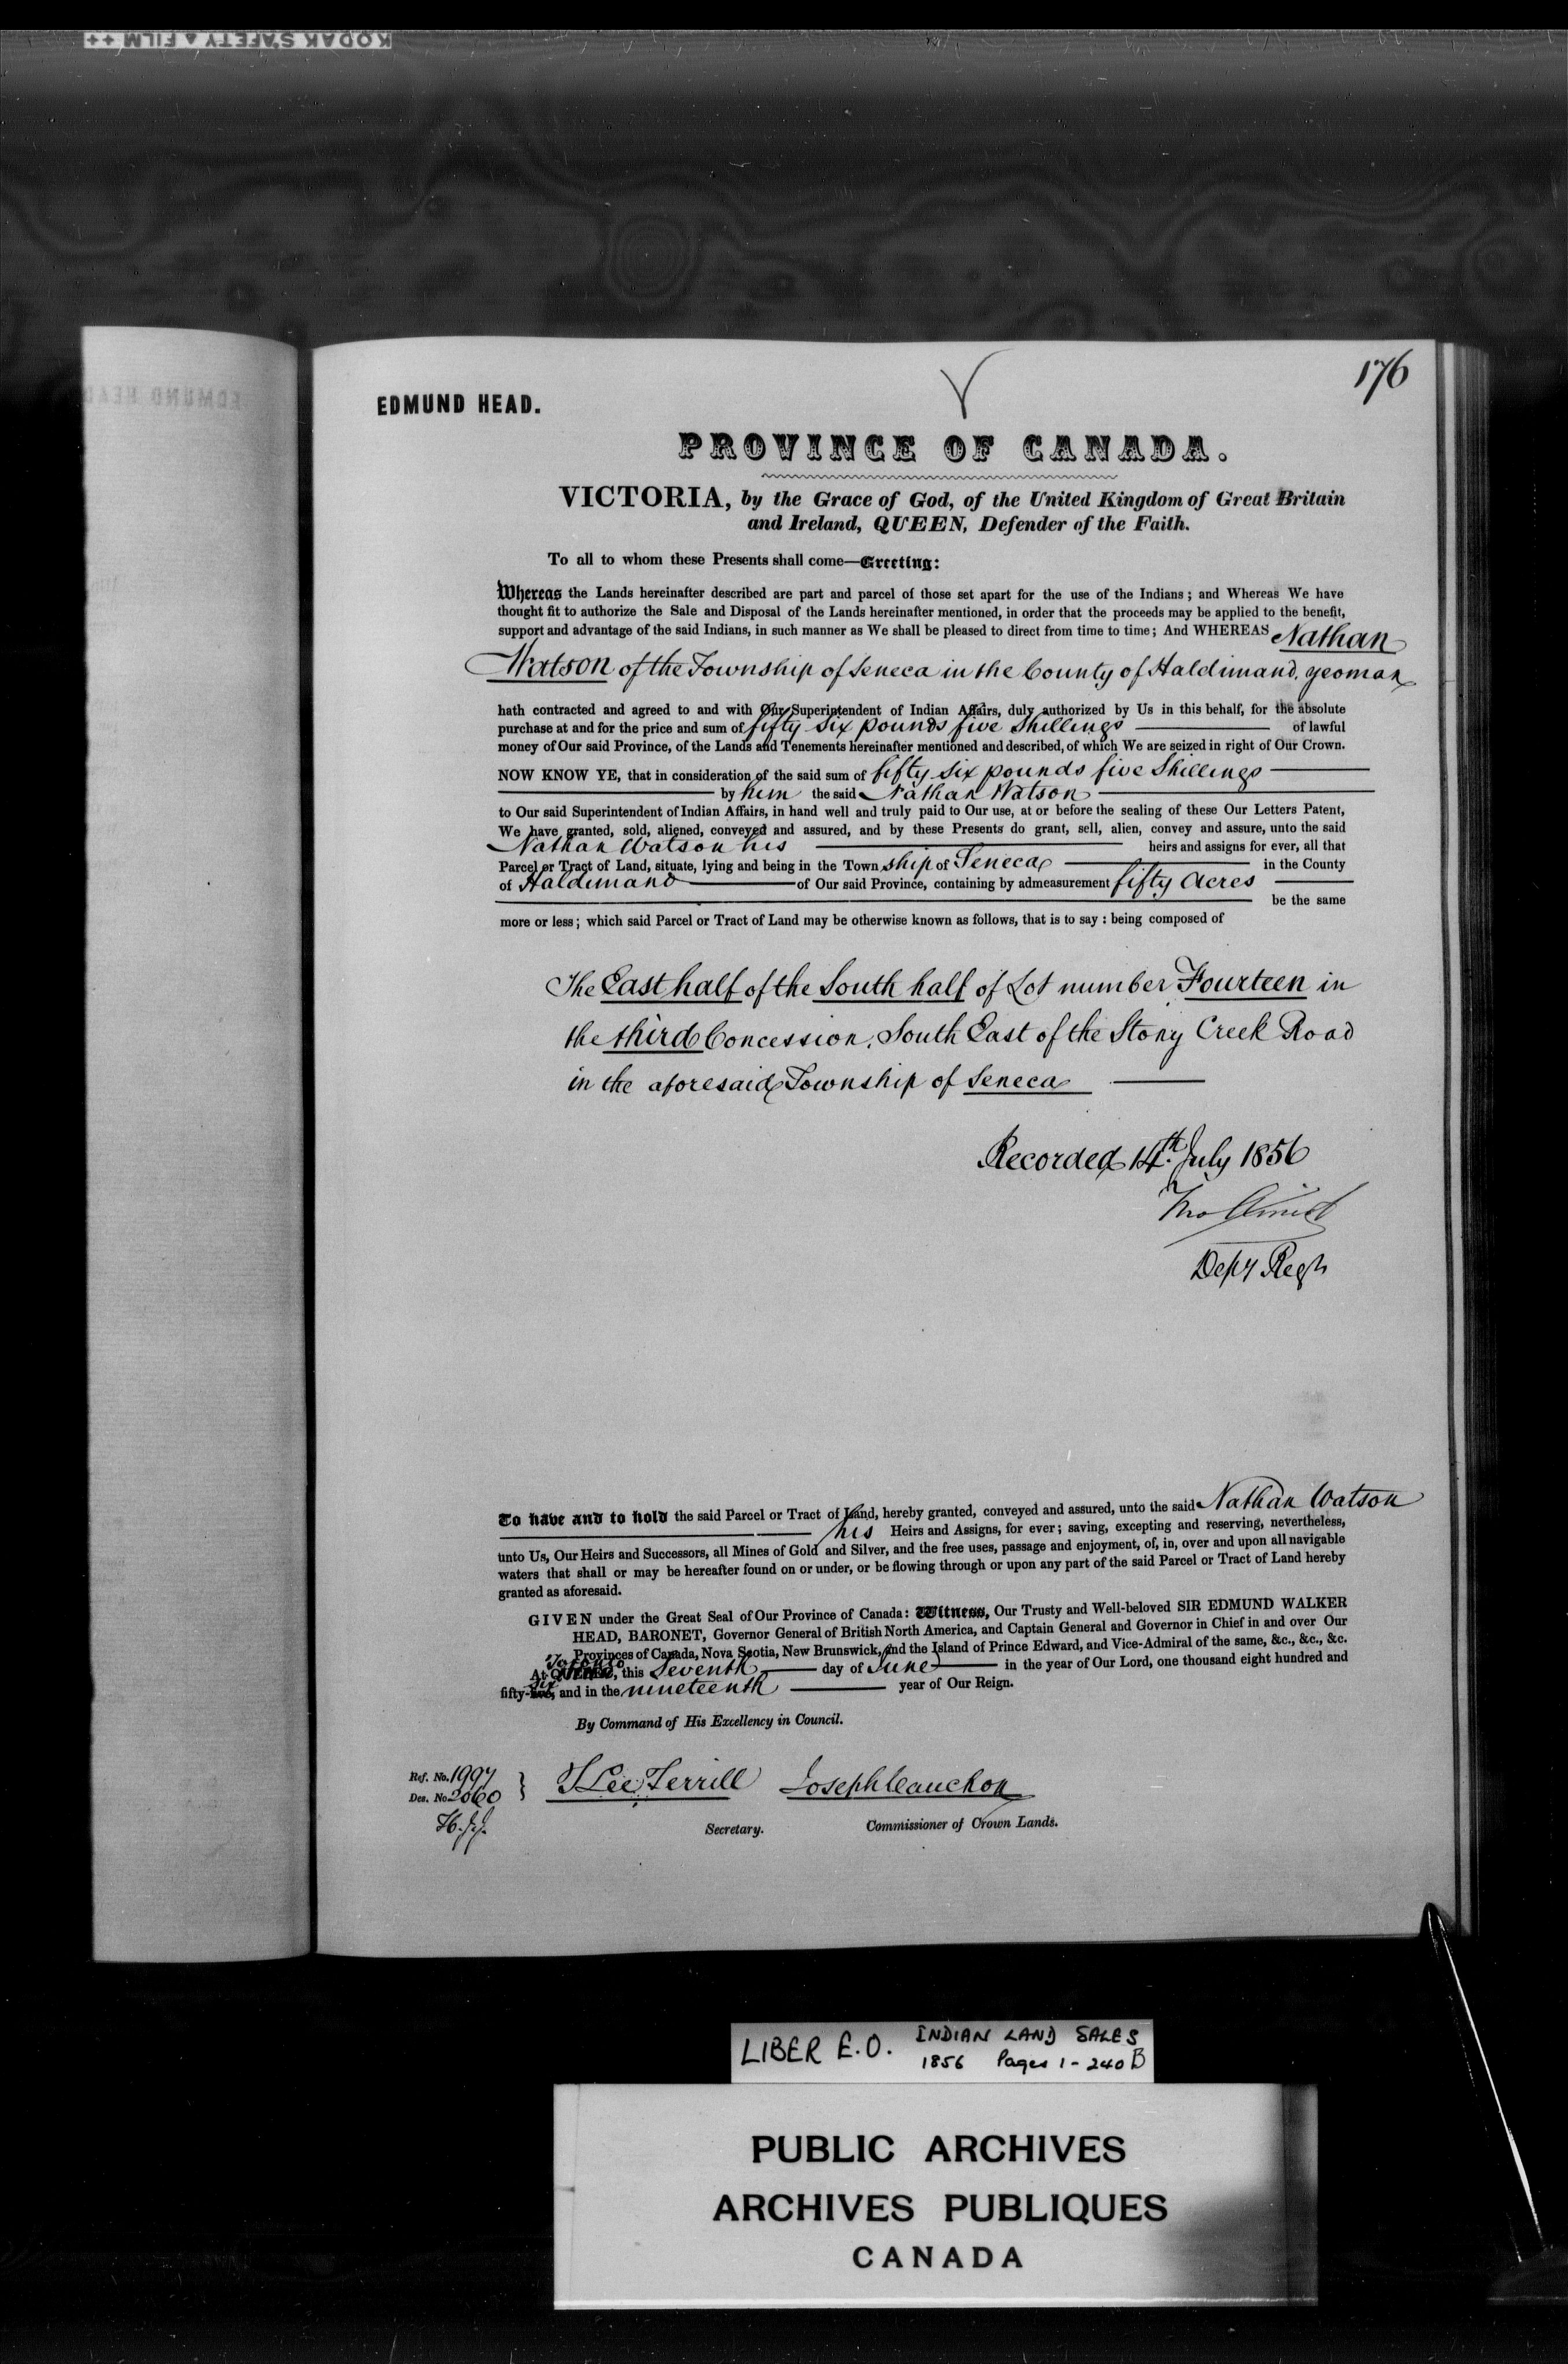 KODAK SAFETY ▲ FILM ++
176
EDMUND HEAD.
PROVINCE OF CANADA.
VICTORIA, by the Grace of God, of the United Kingdom of Great Britain
and Ireland, QUEEN, Defender of the Faith.
To all to whom these Presents shall come—Greeting:
Whereas the Lands hereinafter described are part and parcel of those set apart for the use of the Indians; and Whereas We have
thought fit to authorize the Sale and Disposal of the Lands hereinafter mentioned, in order that the proceeds may be applied to the benefit,
support and advantage of the said Indians, in such manner as We shall be pleased to direct from time to time; And WHEREAS Nathan
Watson of the Township of Seneca in the County of Haldimand, yeoman
hath contracted and agreed to and with Our Superintendent of Indian Affairs, duly authorized by Us in this behalf, for the absolute
purchase at and for the price and sum of fifty six pounds five Shillings of lawful
money of Our said Province, of the Lands and Tenements hereinafter mentioned and described, of which We are seized in right of Our Crown.
NOW KNOW YE, that in consideration of the said sum of fifty six pounds five Shillings
by him the said Nathan Watson
to Our said Superintendent of Indian Affairs, in hand well and truly paid to Our use, at or before the sealing of these Our Letters Patent,
We have granted, sold, aliened, conveyed and assured, and by these Presents do grant, sell, alien, convey and assure, unto the said
Nathan Watson his heirs and assigns for ever, all that
Parcel or Tract of Land, situate, lying and being in the Town ship of Seneca in the County
of Haldimand of Our said Province, containing by admeasurement fifty Acres
be the same
more or less; which said Parcel or Tract of Land may be otherwise known as follows, that is to say: being composed of
The East half of the South half of Lot number Fourteen in
the third Concession, South East of the Stony Creek Road
in the aforesaid Township of Seneca
Recorded 14th July 1856
Depy Regr
To have and to hold the said Parcel or Tract of Land, hereby granted, conveyed and assured, unto the said Nathan Watson
his Heirs and Assigns, for ever; saving, excepting and reserving, nevertheless,
unto Us, Our Heirs and Successors, all Mines of Gold and Silver, and the free uses, passage and enjoyment, of, in, over and upon all navigable
waters that shall or may be hereafter found on or under, or be flowing through or upon any part of the said Parcel or Tract of Land hereby
granted as aforesaid.
GIVEN under the Great Seal of Our Province of Canada: Witness, Our Trusty and Well-beloved SIR EDMUND WALKER
HEAD, BARONET, Governor General of British North America, and Captain General and Governor in Chief in and over Our
Provinces of Canada, Nova Scotia, New Brunswick, and the Island of Prince Edward, and Vice-Admiral of the same, &c., &c., &c.
At Toronto, this Seventh day of June in the year of Our Lord, one thousand eight hundred and
fifty-six, and in the nineteenth year of Our Reign.
By Command of His Excellency in Council.
Ref. No. 1997
Des. No. 2060
T Lee Terrill Joseph Cauchon
Secretary. Commissioner of Crown Lands.
LIBER E.O. INDIAN LAND SALES
1856 Pages 1-240 B
PUBLIC ARCHIVES
ARCHIVES PUBLIQUES
CANADA